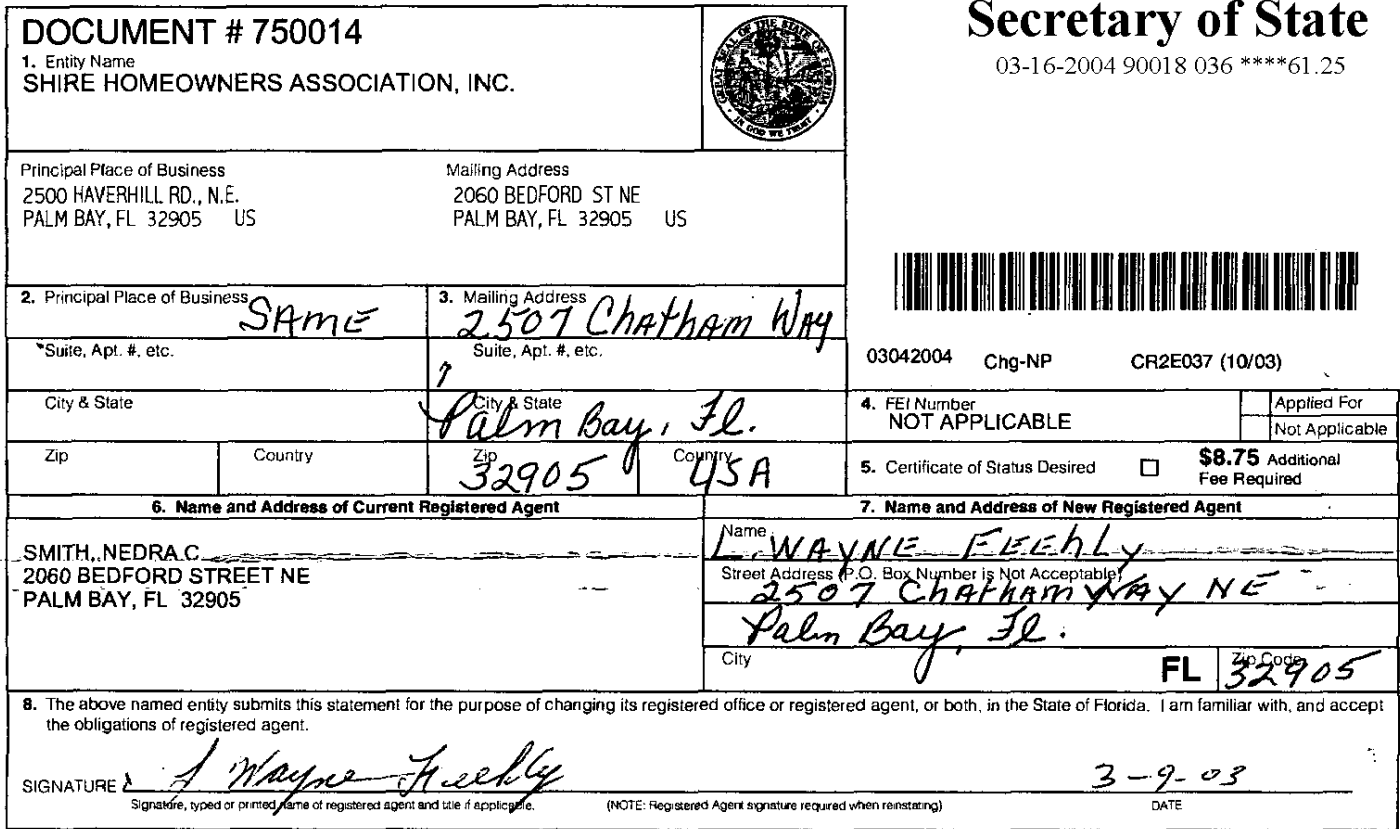 DOCUMENT # 750014
1. Entity Name
SHIRE HOMEOWNERS ASSOCIATION, INC.
GREAT SEAL OF THE STATE OF FLORIDA
IN GOD WE TRUST
Secretary of State
03-16-2004 90018 036 ****61.25
Principal Place of Business
2500 HAVERHILL RD., N.E.
PALM BAY, FL 32905 US
Mailing Address
2060 BEDFORD ST NE
PALM BAY, FL 32905 US
2. Principal Place of Business
SAME
3. Mailing Address
2507 Chatham Way
Suite, Apt. #, etc.
Suite, Apt. #, etc.
03042004 Chg-NP CR2E037 (10/03)
City & State
City & State
Palm Bay, Fl.
4. FEI Number
NOT APPLICABLE
Applied For
Not Applicable
Zip
Country
Zip
32905
Country
USA
5. Certificate of Status Desired
$8.75 Additional
Fee Required
6. Name and Address of Current Registered Agent
SMITH, NEDRA C
2060 BEDFORD STREET NE
PALM BAY, FL 32905
7. Name and Address of New Registered Agent
Name
L. WAYNE FEEhLy
Street Address (P.O. Box Number is Not Acceptable)
2507 Chatham Way NE
Palm Bay, Fl.
City
FL
Zip Code
32905
8. The above named entity submits this statement for the purpose of changing its registered office or registered agent, or both, in the State of Florida. I am familiar with, and accept
the obligations of registered agent.
SIGNATURE
L Wayne Feehly
3-9-03
Signature, typed or printed name of registered agent and title if applicable.
(NOTE: Registered Agent signature required when reinstating)
DATE